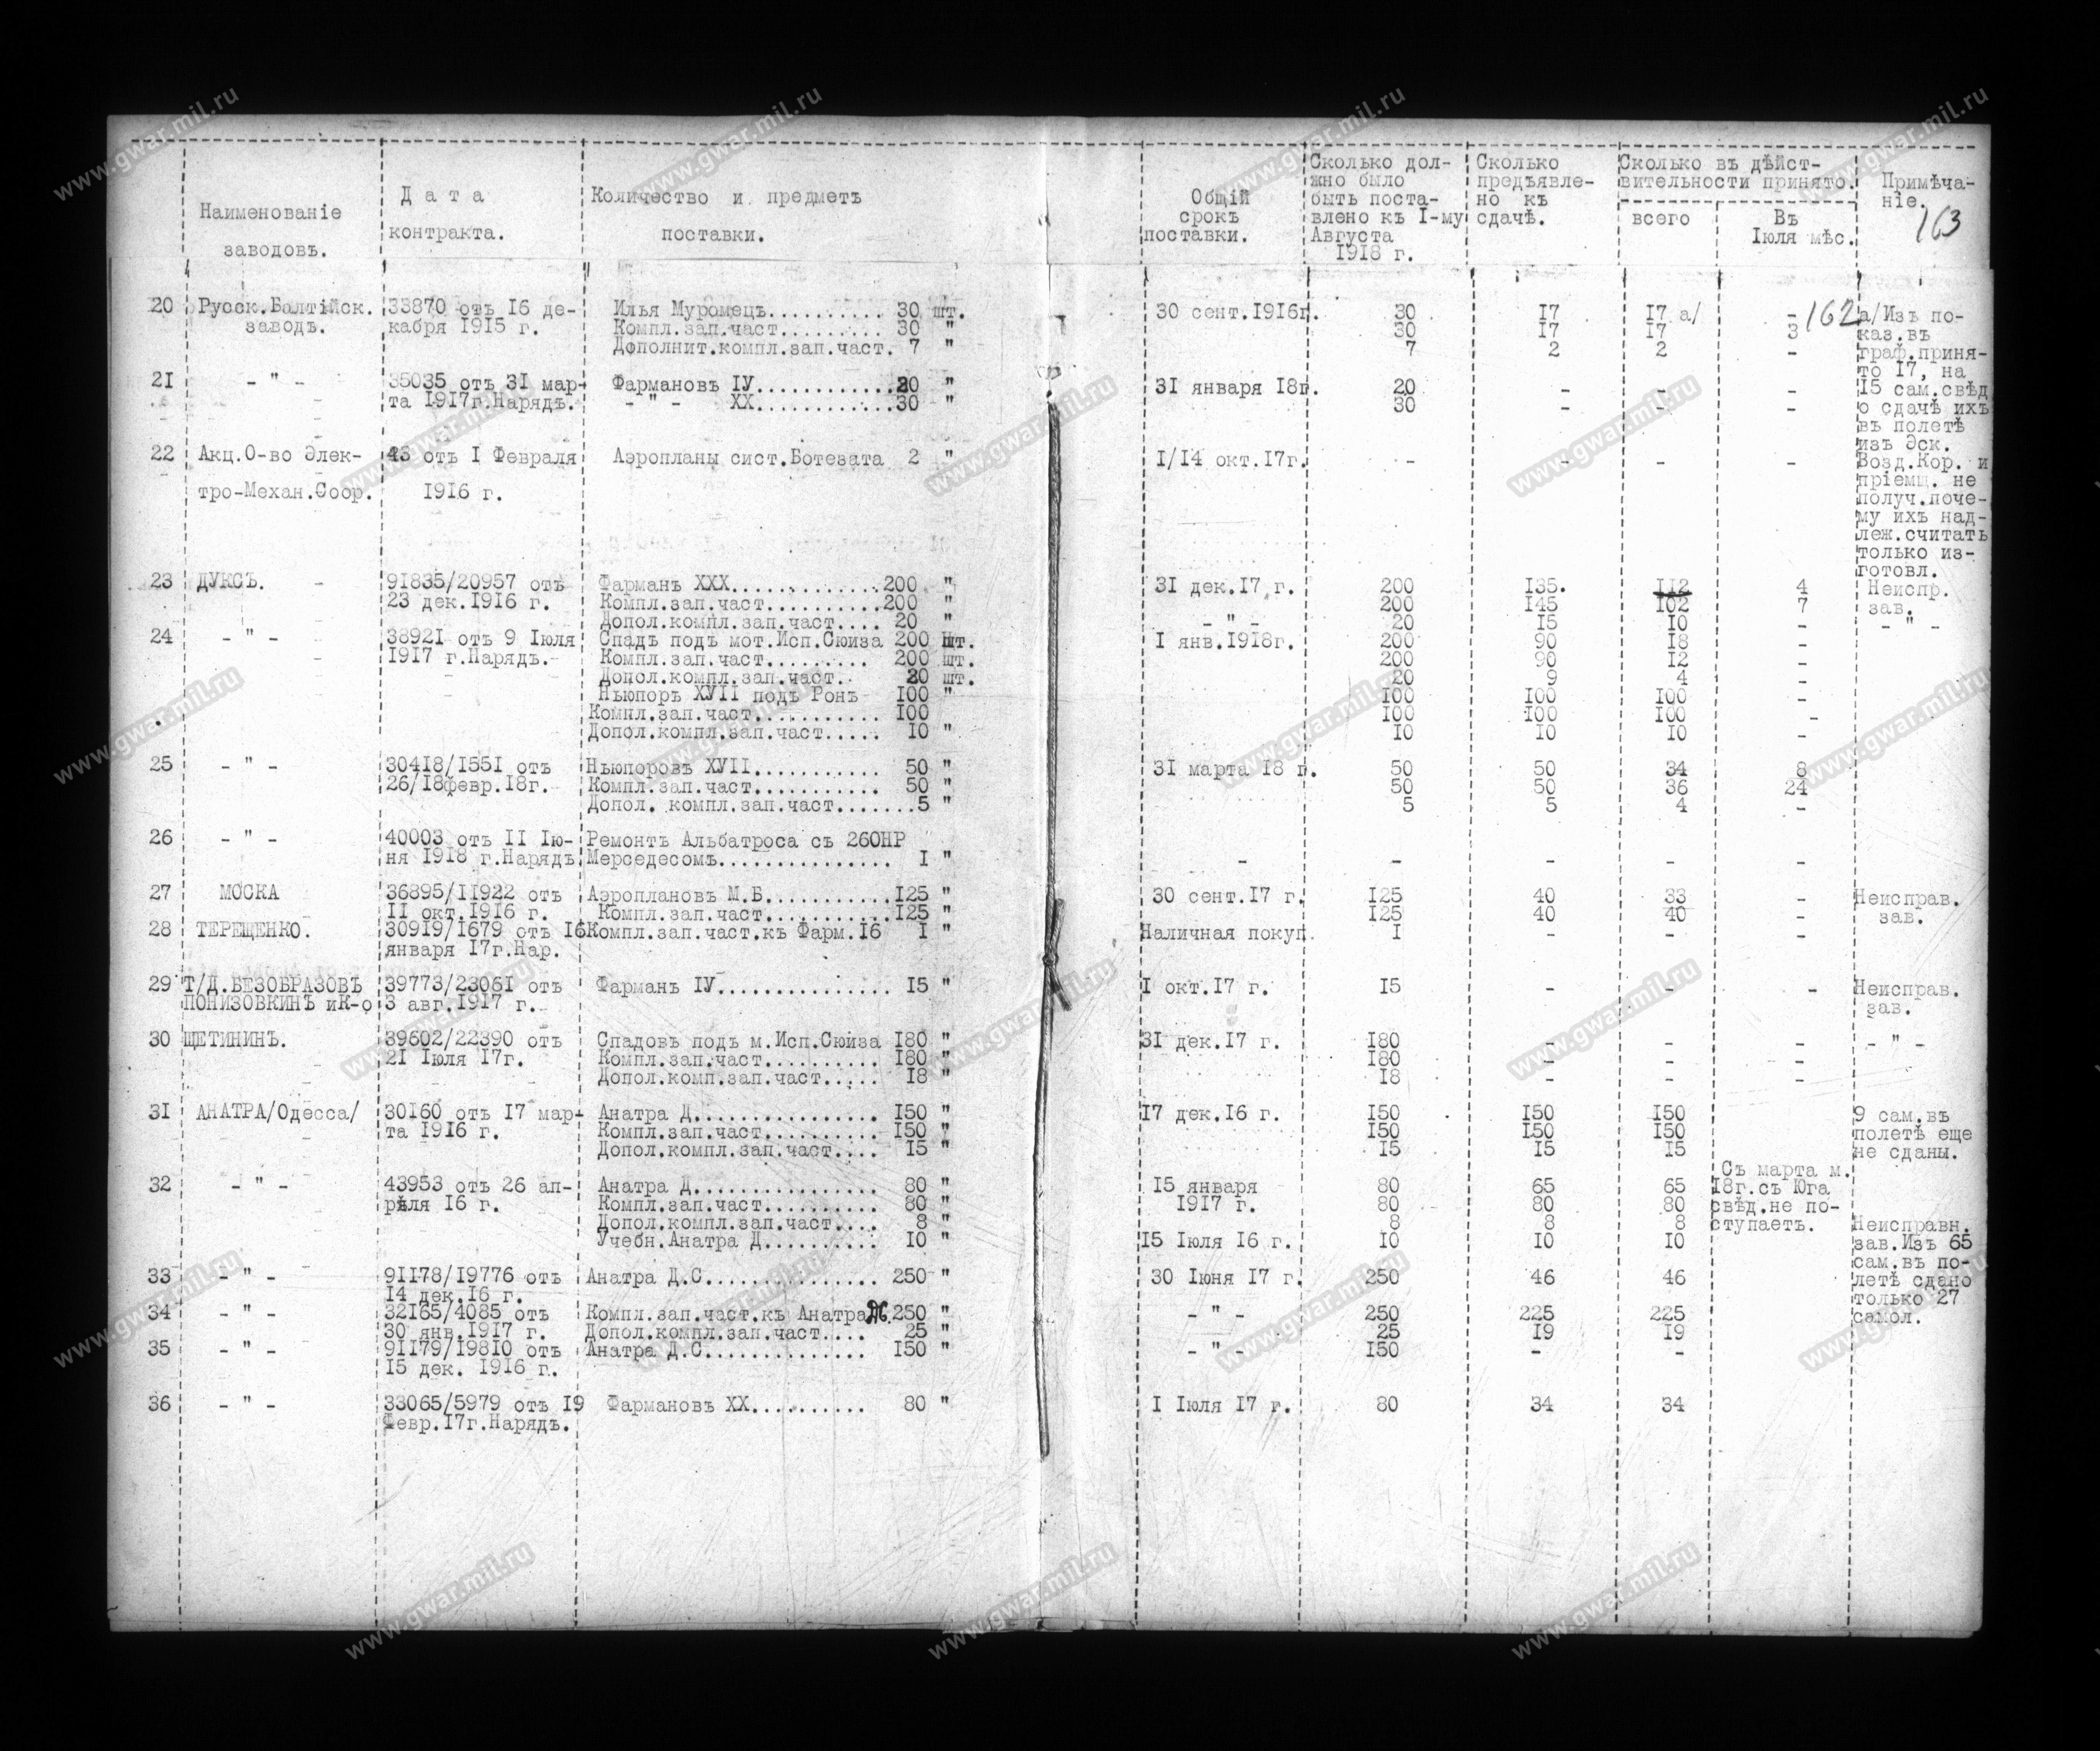 Наименованіе заводовъ.
Дата контракта.
Количество и предметъ поставки.
Общій срокъ поставки.
Сколько должно было быть поставлено къ I-му Августа 1918 г.
Сколько предъявлено къ сдачѣ.
Сколько въ дѣйствительности принято.
всего
Въ Іюля мѣс.
Примѣчаніе.
163
162
20 Русск.Балтійск. 33870 отъ I6 де- Илья Муромецъ........... 30 шт. 30 сент.1916г. 30 I7 I7 а/ - а/Изъ по-
заводъ. кабря I9I5 г. Компл.зап.част......... 30 " 30 I7 I7 3 каз.въ
Дополнит.компл.зап.част. 7 " 7 2 2 - граф.приня-
то I7, на
2I - " - 35035 отъ 3I мар- Фармановъ IУ............20 " 3I января I8г. 20 - - - I5 сам.свѣд
та I9I7г.Нарядъ. - " - XX............30 " 30 - - - о сдачѣ ихъ
въ полетѣ
изъ Эск.
22 Акц.О-во Элек- 43 отъ I Февраля Аэропланы сист.Ботезата 2 " I/I4 окт.I7г. - - - - Возд.Кор. и
пріемщ. не
тро-Механ.Соор. I9I6 г. получ.поче-
му ихъ над-
леж.считать
только из-
готовл.
23 ДУКСЪ. 9I835/20957 отъ Фарманъ XXX.............200 " 3I дек.I7 г. 200 I35. II2 4 Неиспр.
23 дек.I9I6 г. Компл.зап.част..........200 " 200 I45 I02 7 зав.
Допол.компл.зап.част.... 20 " - " - 20 I5 I0 - - " -
24 - " - 3892I отъ 9 Іюля Спадъ подъ мот.Исп.Сюиза 200 шт. I янв.I9I8г. 200 90 I8 -
I9I7 г.Нарядъ. Компл.зап.част......... 200 шт. 200 90 I2 -
Допол.компл.зап.част. 20 шт. 20 9 4 -
Ньюпоръ XУII подъ Ронъ I00 " I00 I00 I00 -
Компл.зап.част........... I00 I00 I00 I00 -
Допол.компл.зап.част..... I0 " I0 I0 I0 -
25 - " - 304I8/I55I отъ Ньюпоровъ XУII........... 50 " 3I марта I8 г. 50 50 34 8
26/I8февр.I8г. Компл.зап.част........... 50 " 50 50 36 24
Допол. компл.зап.част.......5 " 5 5 4 -
26 - " - 40003 отъ II Ію- Ремонтъ Альбатроса съ 260НР
ня I9I8 г.Нарядъ Мерседесомъ............... I " - - - - -
27 МОСКА 36895/II922 отъ Аэроплановъ М.Б...........I25 " 30 сент.I7 г. I25 40 33 - Неисправ.
II окт.I9I6 г. Компл.зап.част...........I25 " I25 40 40 - зав.
28 ТЕРЕЩЕНКО. 309I9/I679 отъ I6 Компл.зап.част.къ Фарм.I6 I " Наличная покуп. I - - -
января I7г.Нар.
29 Т/Д.БЕЗОБРАЗОВЪ 39773/2306I отъ Фарманъ IУ............... I5 " I окт.I7 г. I5 - - - Неисправ.
ПОНИЗОВКИНЪ иК-о 3 авг.I9I7 г. зав.
30 ЩЕТИНИНЪ. 39602/22390 отъ Спадовъ подъ м.Исп.Сюиза I80 " 3I дек.I7 г. I80 - - - - " -
2I Іюля I7г. Компл.зап.част.......... I80 " I80 - - -
Допол.комп.зап.част..... I8 " I8 - - -
3I АНАТРА/Одесса/ 30I60 отъ I7 мар- Анатра Д................ I50 " I7 дек.I6 г. I50 I50 I50 9 сам.въ
та I9I6 г. Компл.зап.част.......... I50 " I50 I50 I50 полетѣ еще
Допол.компл.зап.част.... I5 " I5 I5 I5 не сданы.
Съ марта м.
32 - " - 43953 отъ 26 ап- Анатра Д................ 80 " I5 января 80 65 65 I8г.съ Юга
рѣля I6 г. Компл.зап.част.......... 80 " I9I7 г. 80 80 80 свѣд.не по-
Допол.компл.зап.част.... 8 " 8 8 8 ступаетъ. Неисправн.
Учебн.Анатра Д.......... I0 " I5 Іюля I6 г. I0 I0 I0 зав.Изъ 65
сам.въ по-
33 - " - 9II78/I9776 отъ Анатра Д.С............... 250 " 30 Іюня I7 г. 250 46 46 летѣ сдано
I4 дек.I6 г. только 27
34 - " - 32I65/4085 отъ Компл.зап.част.къ Анатра ДС.250 " - " - 250 225 225 самол.
30 янв.I9I7 г. Допол.компл.зап.част.... 25 " 25 I9 I9
35 - " - 9II79/I98I0 отъ Анатра Д.С.............. I50 " - " - I50 - -
I5 дек. I9I6 г.
36 - " - 33065/5979 отъ I9 Фармановъ XX.......... 80 " I Іюля I7 г. 80 34 34
Февр.I7г.Нарядъ.
www.gwar.mil.ru